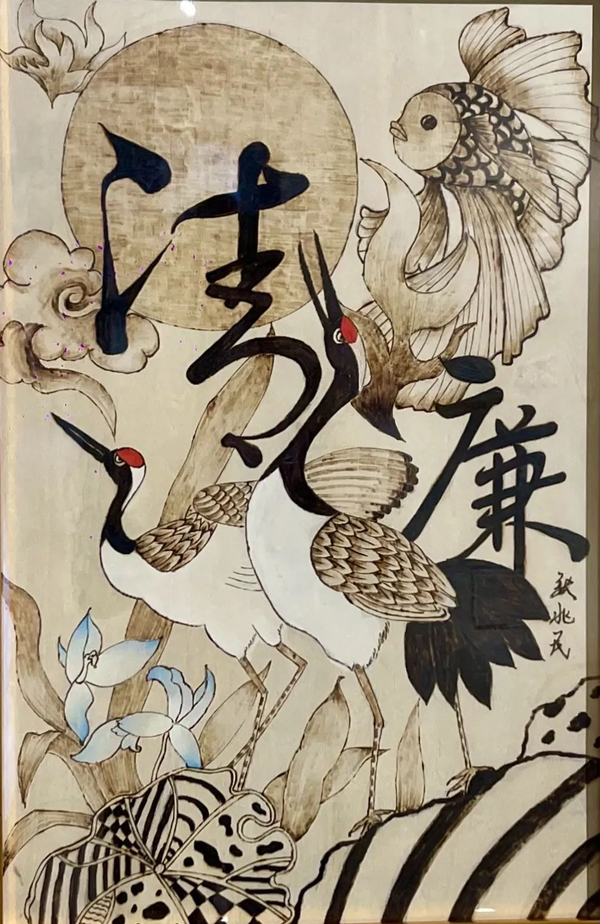 清
廉
兆民